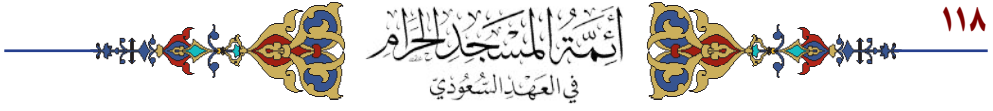 ١١٨
أَئِمَّةُ المَسْجِدِ الحَرَامِ
في العَهْدِ السُّعُودِيّ